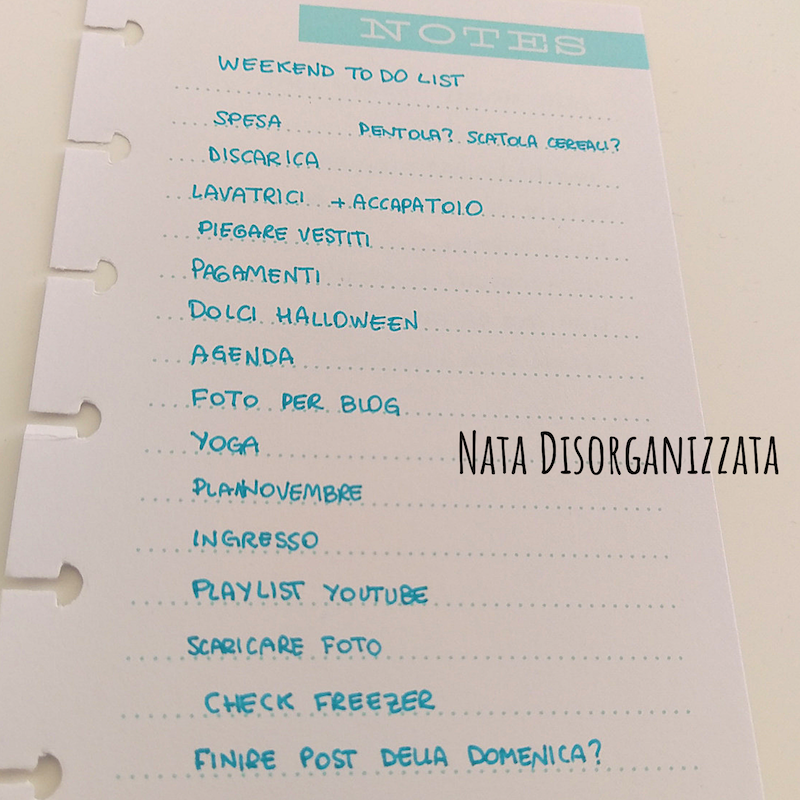 NOTES
WEEKEND TO DO LIST
SPESA PENTOLA? SCATOLA CEREALI?
DISCARICA
LAVATRICI + ACCAPATOIO
PIEGARE VESTITI
PAGAMENTI
DOLCI HALLOWEEN
AGENDA
FOTO PER BLOG
YOGA
NATA DISORGANIZZATA
PLANNOVEMBRE
INGRESSO
PLAYLIST YOUTUBE
SCARICARE FOTO
CHECK FREEZER
FINIRE POST DELLA DOMENICA?